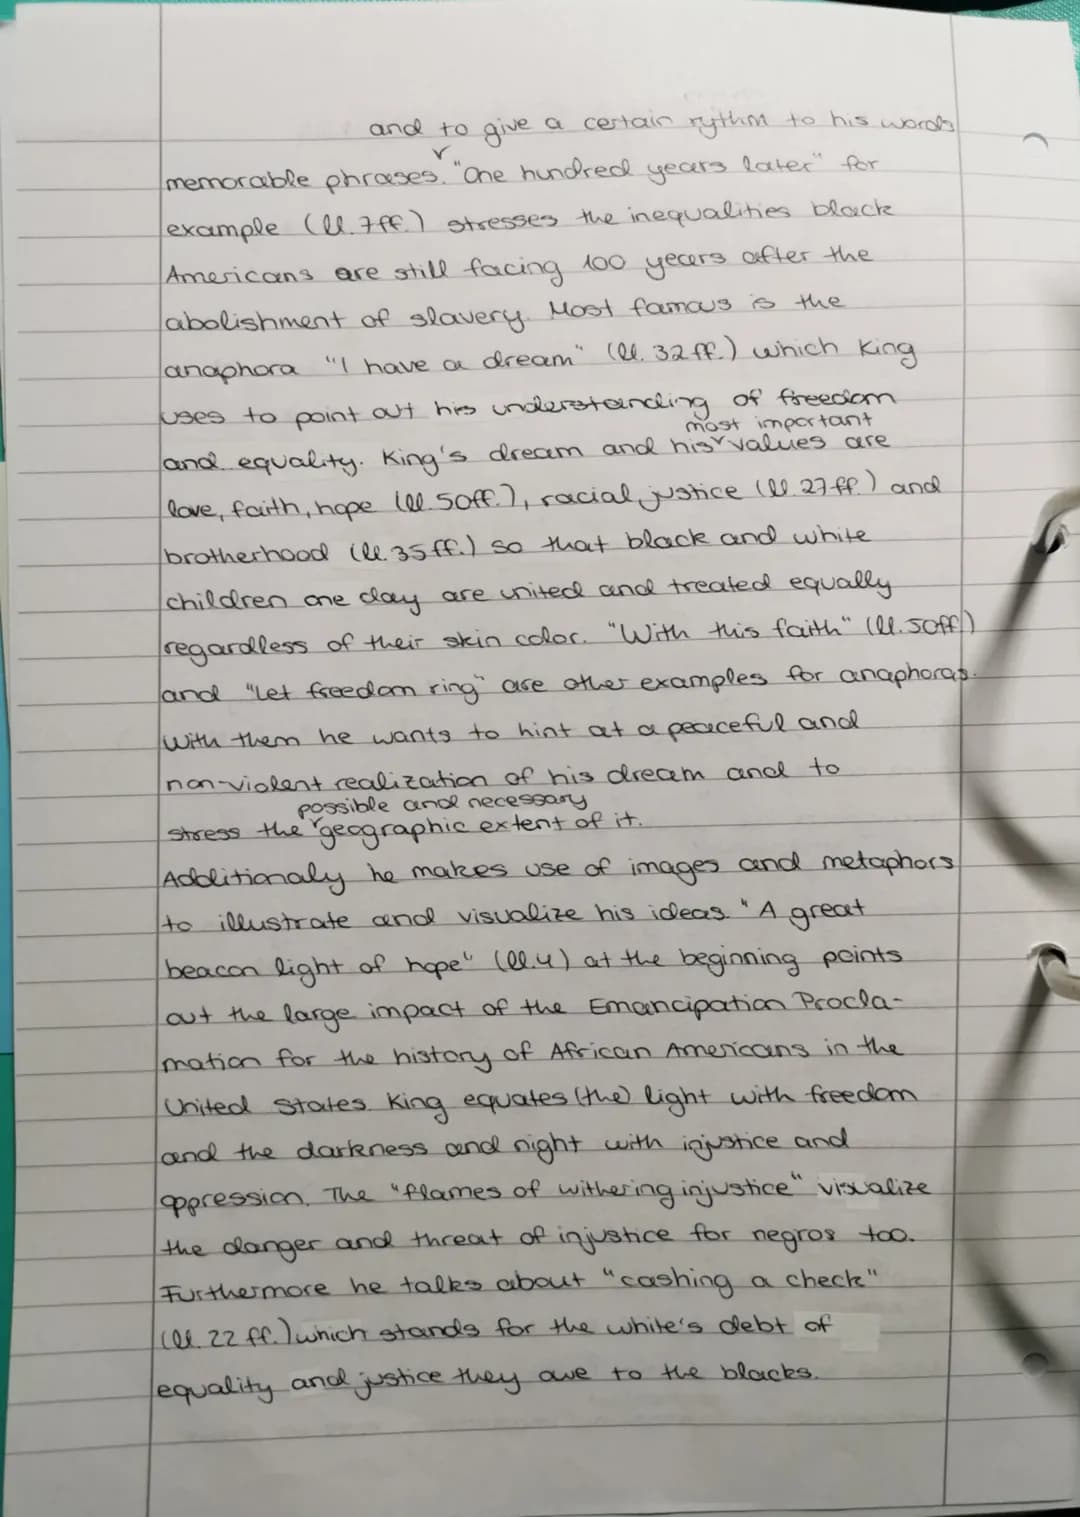 and to give a certain rythm to his words
memorable phrases. "One hundred years later" for
example (ll. 7ff.) stresses the inequalities black
Americans are still facing 100 years after the
abolishment of slavery. Most famous is the
anaphora "I have a dream" (ll. 32 ff.) which King
uses to point out his understanding of freedom
most important
and equality. King's dream and his values are
love, faith, hope (ll. 50ff.), racial justice (ll. 27 ff.) and
brotherhood (ll. 35 ff.) so that black and white
children one day are united and treated equally
regardless of their skin color. "With this faith" (ll. 50ff.)
and "let freedom ring" are other examples for anaphoras.
With them he wants to hint at a peaceful and
non-violent realization of his dream and to
possible and necessary
stress the geographic extent of it.
Additionaly he makes use of images and metaphors
to illustrate and visualize his ideas. "A great
beacon light of hope" (ll. 4) at the beginning points
out the large impact of the Emancipation Procla-
mation for the history of African Americans in the
United States. King equates (the) light with freedom
and the darkness and night with injustice and
oppression. The "flames of withering injustice" visualize
the danger and threat of injustice for negros too.
Furthermore he talks about "cashing a check"
(ll. 22 ff.) which stands for the white's debt of
equality and justice they owe to the blacks.